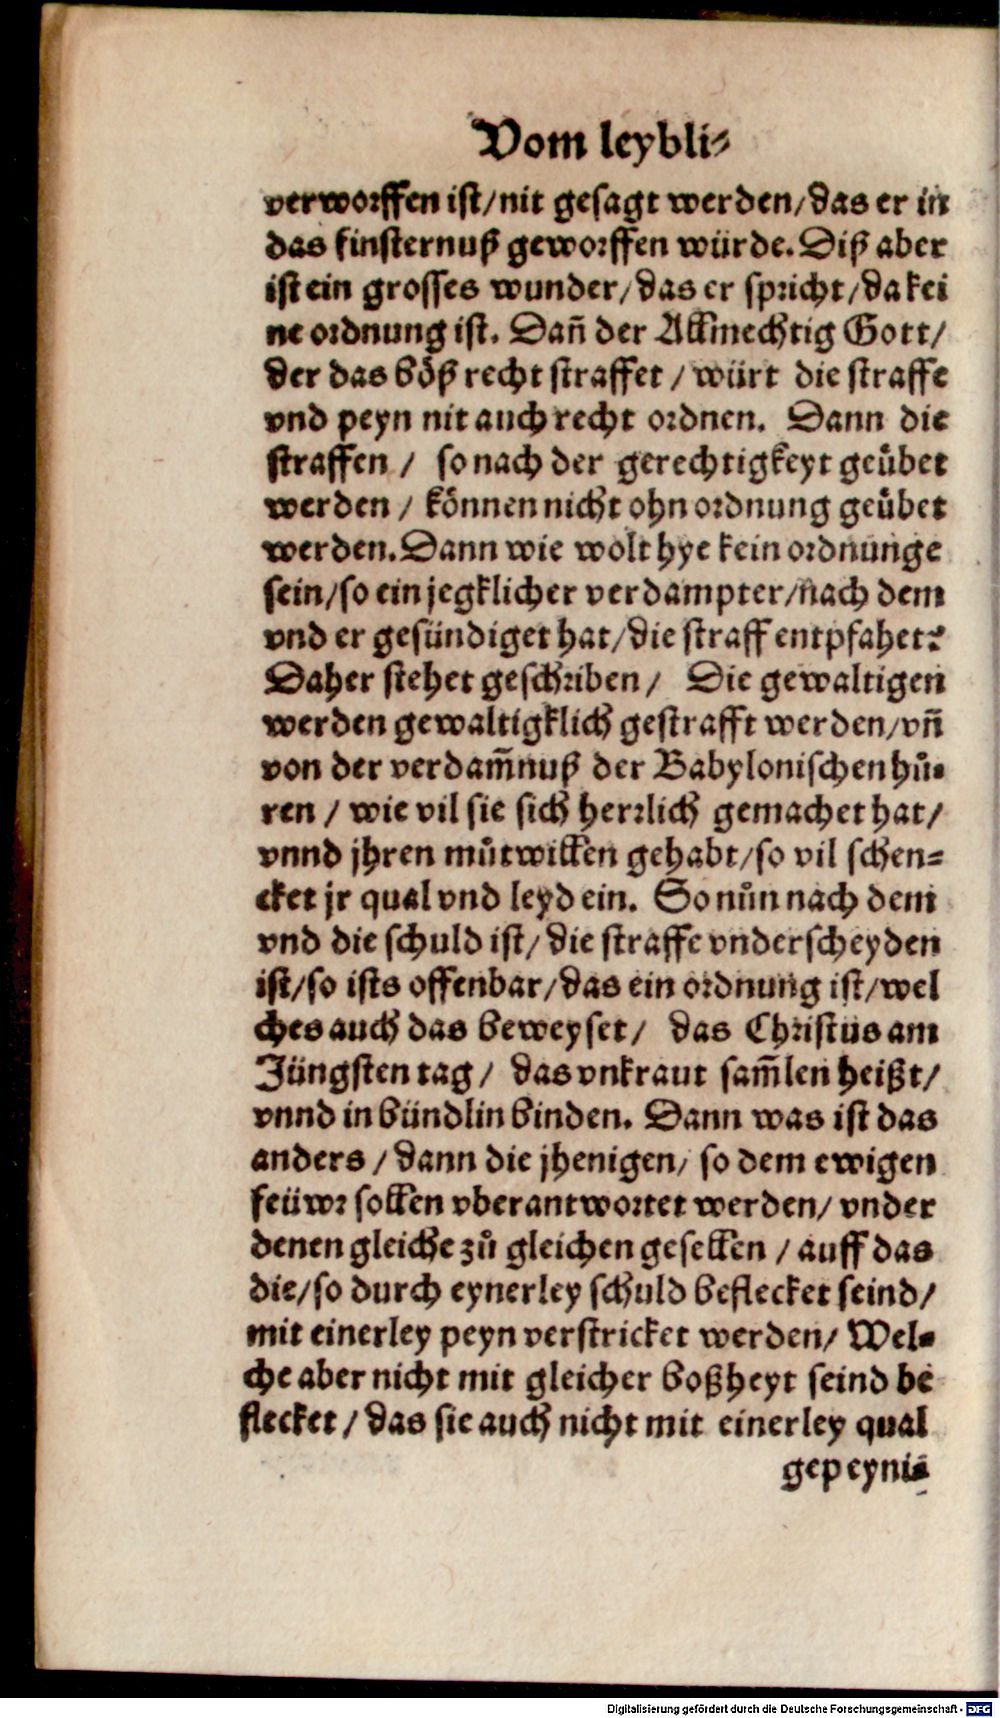 Vom leybli⸗
verworffen ist/nit gesagt werden/das er in
das finsternuß geworffen würde. Diß aber
ist ein grosses wunder/das er spricht/da kei
ne ordnung ist. Dañ der Allmechtig Gott/
der das böß recht straffet / würt die straffe
vnd peyn nit auch recht ordnen. Dann die
straffen / so nach der gerechtigkeyt geübet
werden / können nicht ohn ordnung geübet
werden. Dann wie wolt hye kein ordnunge
sein/so ein jegklicher verdampter/nach dem
vnd er gesündiget hat/die straff entpfahet?
Daher stehet geschriben / Die gewaltigen
werden gewaltigklich gestrafft werden/vñ
von der verdam̄nuß der Babylonischen hů⸗
ren / wie vil sie sich herrlich gemachet hat/
vnnd jhren můtwillen gehabt/so vil schen⸗
cket jr qual vnd leyd ein. So nůn nach dem
vnd die schuld ist/die straffe vnderscheyden
ist/so ists offenbar/das ein ordnung ist/wel
ches auch das beweyset / das Christus am
Jüngsten tag / das vnkraut sam̄len heißt/
vnnd in bündlin binden. Dann was ist das
anders / dann die jhenigen/ so dem ewigen
feüwr sollen vberantwortet werden/ vnder
denen gleiche zů gleichen gesellen / auff das
die/so durch eynerley schuld beflecket seind/
mit einerley peyn verstricket werden/ Wel⸗
che aber nicht mit gleicher boßheyt seind be
flecket / das sie auch nicht mit einerley qual
gepeyni⸗
Digitalisierung gefördert durch die Deutsche Forschungsgemeinschaft - DFG